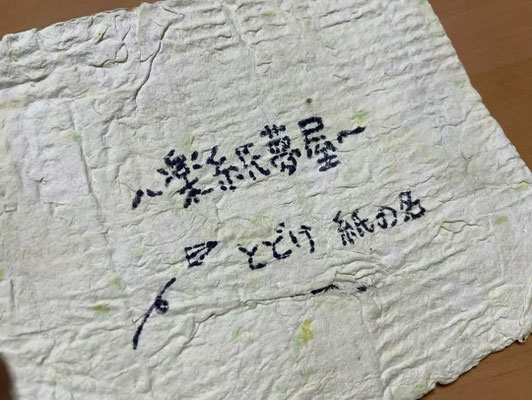 〜楽紙夢屋〜
とどけ 紙の名